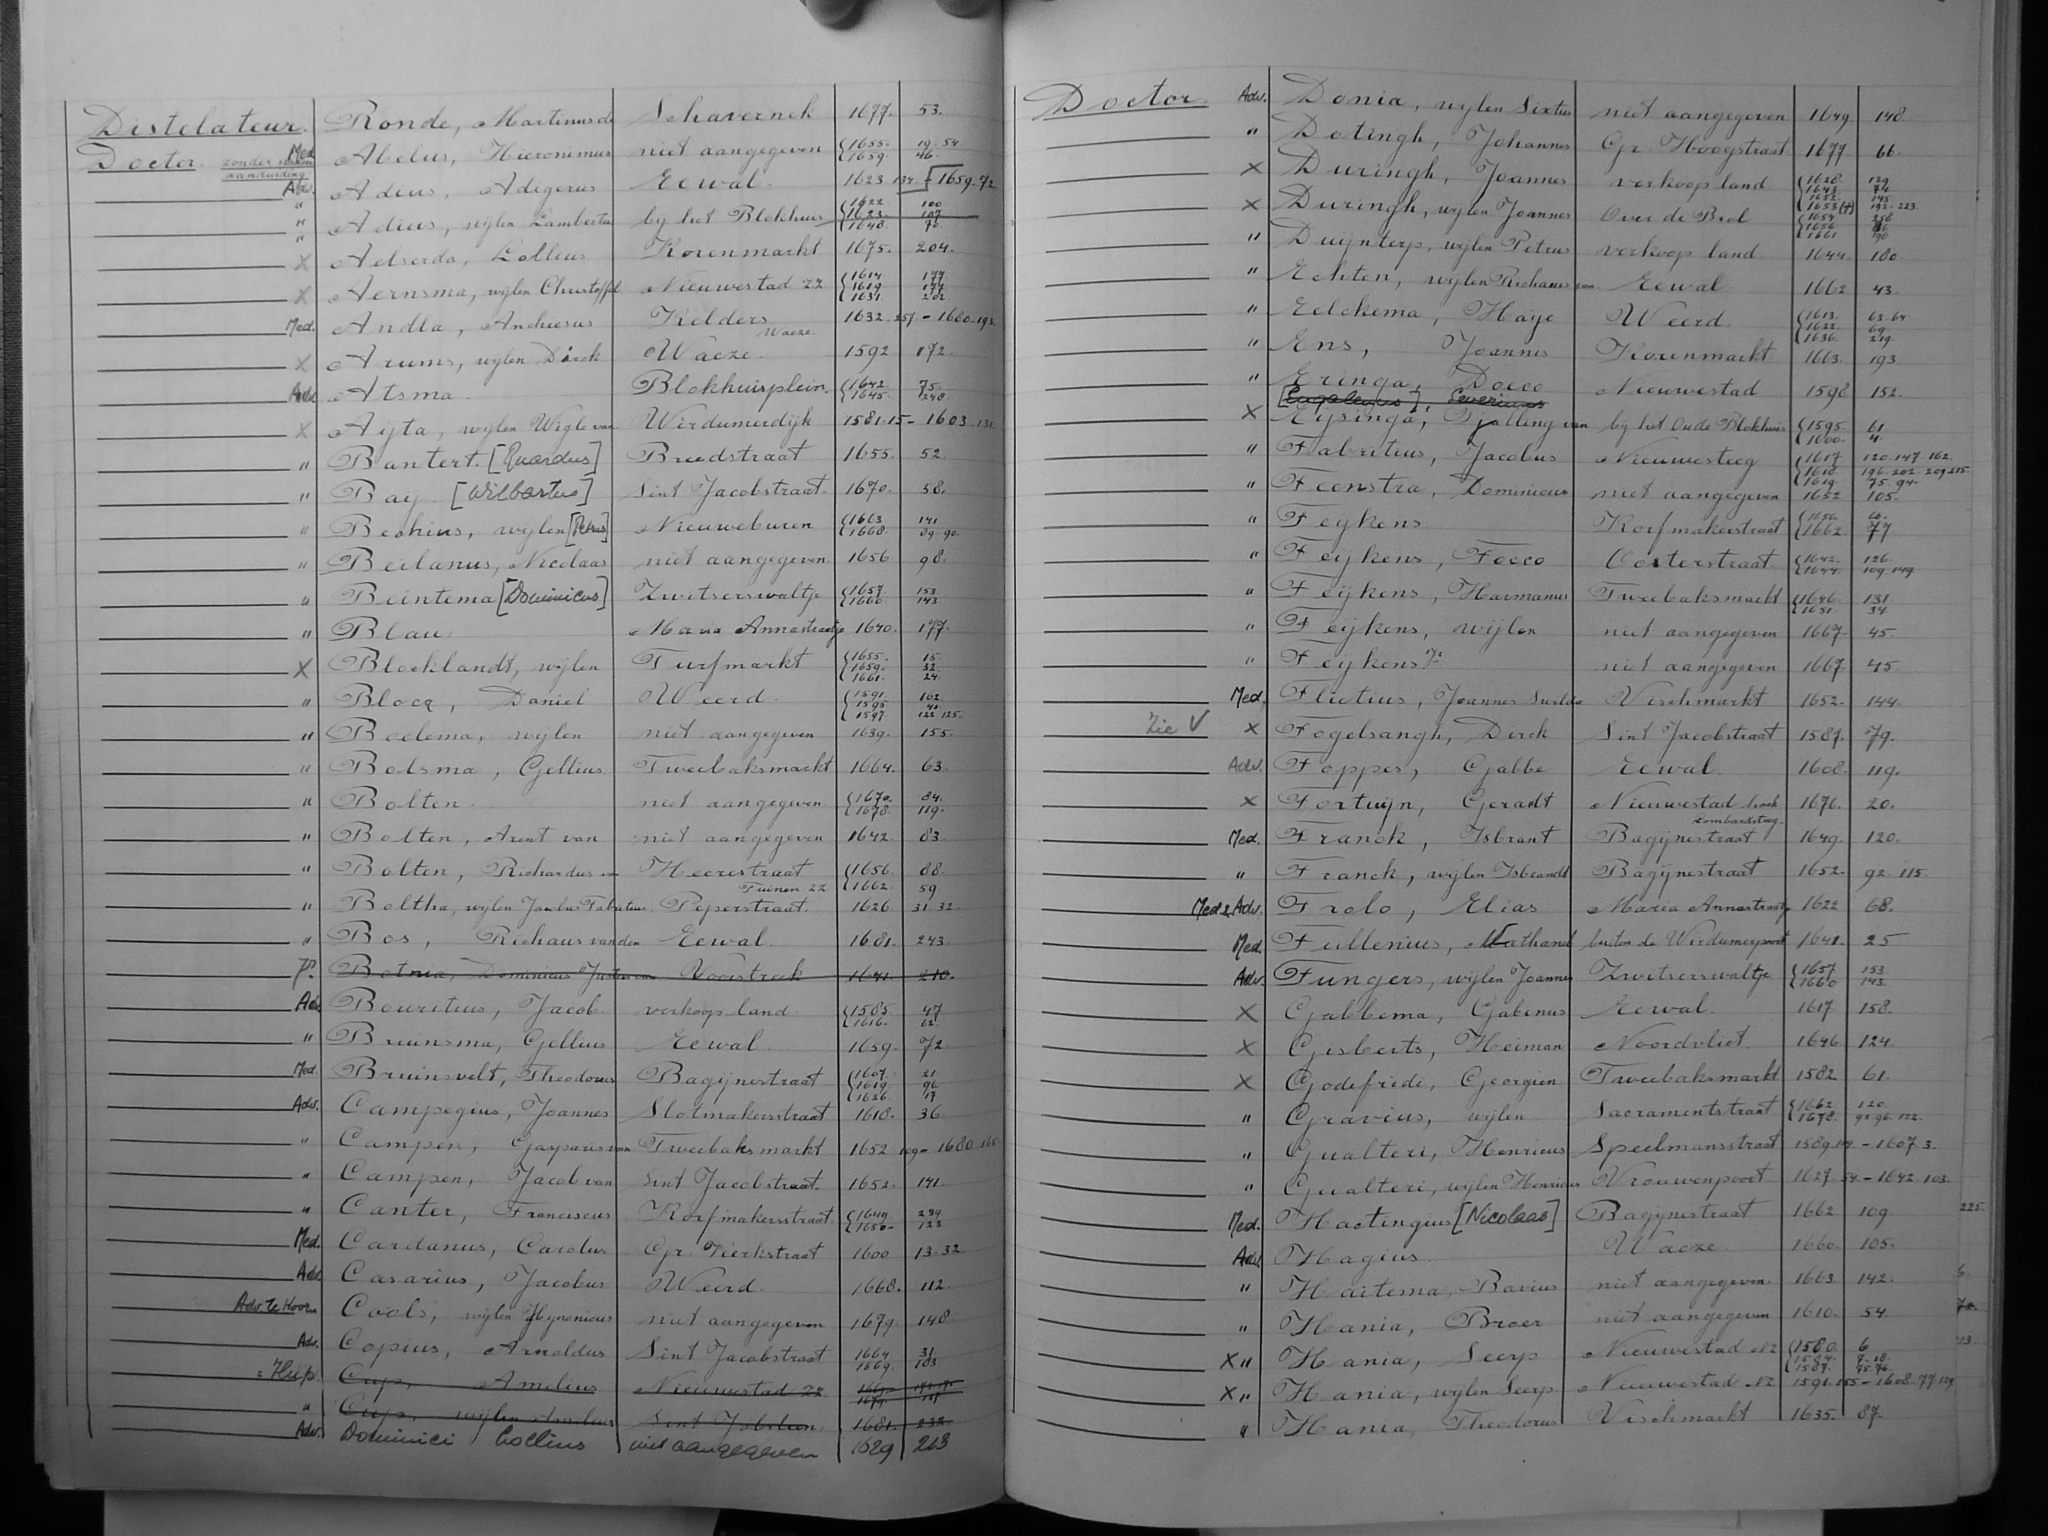 Distelateur. Ronde, Martinus de Schavernek 1677. 53.
Doctor. zonder nadere aanduiding Med Abelus, Hieronimus niet aangegeven 1655. 19.54. 1659. 46.
Adv. Adius, Adigerus Eewal. 1623 134 - 1659.72
" Adius, wijlen Lambertus bij het Blokhuis 1622. 100 1623. 107 1640. 76.
X Aelserda, Lollius Korenmarkt 1675. 204.
X Aernsma, wijlen Christoffel Nieuwestad ZZ 1614. 177 1619 177 1631. 202
Med. Andla, Anchisus Kelders Waeze 1632.257 - 1680.192
X Arums, wijlen Dirck Waeze. 1592 172.
Adv. Atsma Blokhuisplein 1642. 75. 1645. 248.
X Aijta, wijlen Wigle van Wirdumerdijk 1581.15 - 1603.131.
" Bantert. [Ruardus] Breedstraat 1655. 52.
" Baij. [Wilbertus] Sint Jacobstraat. 1670. 58.
" Bechius, wijlen [Petrus] Nieuweburen 1663. 141 1668. 89.90.
" Beilanus, Nicolaas niet aangegeven. 1656 98.
" Beintema [Dominicus] Zwitserswaltje 1657. 153 1666. 143
" Blau. Maria Annastraatje 1640. 177.
X Blocklandt, wijlen Turfmarkt 1655. 15. 1659. 32 1661. 24.
" Blocq, Daniel Weerd. 1591. 162. 1595 41. 1597 122 125.
" Boelema, wijlen niet aangegeven 1639. 155.
" Bolsma, Gellius Tweebaksmarkt 1664. 63.
" Bolten. niet aangegeven 1670. 84. 1678. 119.
" Bolten, Arent van niet aangegeven 1642. 83.
" Bolten, Richardus van Heerestraat Tuinen ZZ 1656. 88. 1662. 59
" Boltha, wijlen Jacobus Peperstraat. 1626 31.32.
" Bos, Richaus van den Eewal. 1681. 243.
Botnia, Dominicus Justus van Voorstreek 1641. 210.
Adv. Bouritius, Jacob verkoop land. 1585. 47 1616. 62.
" Bruinsma, Gellius Eewal. 1659. 72.
Med. Bruinsvelt, Theodorus Bagijnestraat 1607. 21 1619. 96 1626. 17
Adv. Campegius, Joannes Slotmakersstraat 1618. 36.
" Campen, Gasparis van Tweebaksmarkt 1652 109 - 1680.
" Campen, Jacob van Sint Jacobstraat. 1652. 141.
" Canter, Franciscus Korfmakersstraat 1649. 234. 1650. 123.
Med. Cardanus, Carolus Gr. Kerkstraat 1600 13.32.
Adv. Casarius, Jacobus Weerd. 1668. 112.
Adv. te Hoorn Cools, wijlen niet aangegeven 1679. 148
Adv. Copius, Arnoldus Sint Jacobstraat 1664. 31 1669. 103
Cup, Amelius Nieuwestad ZZ
" Cup, wijlen Amelius Sint 1681. 232.
Adv. Dominici Lollius niet aangegeven 1629 213
Doctor. Adv. Donia, wijlen Sixtus niet aangegeven 1649. 148
" Dotingh, Johannes Gr. Hoogstraat 1677 66.
X Duringh, Joannes verkoop land 1628. 129. 1643. 74. 1652. 145.
X Duringh, wijlen Joannes Over de Brol 1653(4) 192.223. 1654 258 1656. 1661
" Duijnterp, wijlen Petrus verkoop land. 1644. 180.
" Echten, wijlen Richaeus van Eewal. 1662 43.
" Eelckema, Haije Weerd. 1613. 63.64 1622. 69. 1636. 219
" Ens, Joannes Korenmarkt 1663. 193
" Eringa, Docco Nieuwestad 1598 152.
[Engelenus] Severinus
X Eijsinga, Tjalling van bij het Oude Blokhuis 1595. 61. 1600. 4.
" Fabritius, Jacobus Nieuwesteeg 1617. 120.147.162. 1618. 196.202.209.215. 1619. 75.94.
" Feenstra, Dominicus niet aangegeven 1652 105.
" Feijkens Korfmakerstraat 1656. 66. 1662. 77
" Feijkens, Focco Oosterstraat. 1642. 126. 1644. 109.149.
" Feijkens, Harmanus Tweebaksmarkt 1646. 131 1651. 34.
" Feijkens, wijlen niet aangegeven 1667. 45.
" Feijkens Jr niet aangegeven 1667. 45
Med. Flietius, Joannes Vischmarkt 1652. 144.
Zie V X Fogelsangh, Dirck Sint Jacobstraat 1587. 79.
Adv. Foppes, Gabbe Eewal. 1608. 119.
X Fortuijn, Geradt Nieuwestad hoek Lombardsteeg. 1676. 20.
Med. Franck, Isbrant Bagijnestraat 1649. 120.
" Franck, wijlen Isbrandt Bagijnestraat 1652. 92.115.
Med & Adv. Frolo, Elias Maria Annastraatje 1622 68.
Med. Fullenius, Nathanel buiten de Wirdumerpoort 1641. 25
Adv. Fungers, wijlen Joannes Zwitserswaltje 1657 153. 1660 143.
X Gabbema, Gabinus Eewal. 1617 158.
X Gisberts, Heiman Noordvliet. 1646 124
X Godefridi, Georgien Tweebaksmarkt 1582 61.
" Gravius, wijlen Sacramentstraat 1662. 120. 1678. 92.96.112.
" Gualteri, Henricus Speelmansstraat 1589.114 - 1607.3.
" Gualteri, wijlen Henricus Vrouwenpoort 1627.54 - 1642.103.
Med. Hactingius [Nicolaas] Bagijnestraat 1662 109. 225.
Adv. Hagius. Waeze. 1660. 105.
" Haitema, Bavius niet aangegeven. 1663. 142.
" Hania, Broer niet aangegeven 1610. 54.
X " Hania, Seerp Nieuwestad NZ 1580. 6 1584. 7.18. 1587. 75.76.
X " Hania, wijlen Seerp Nieuwestad NZ 1591.155 - 1608.77.
" Hania, Theodorus Vischmarkt 1635. 87.